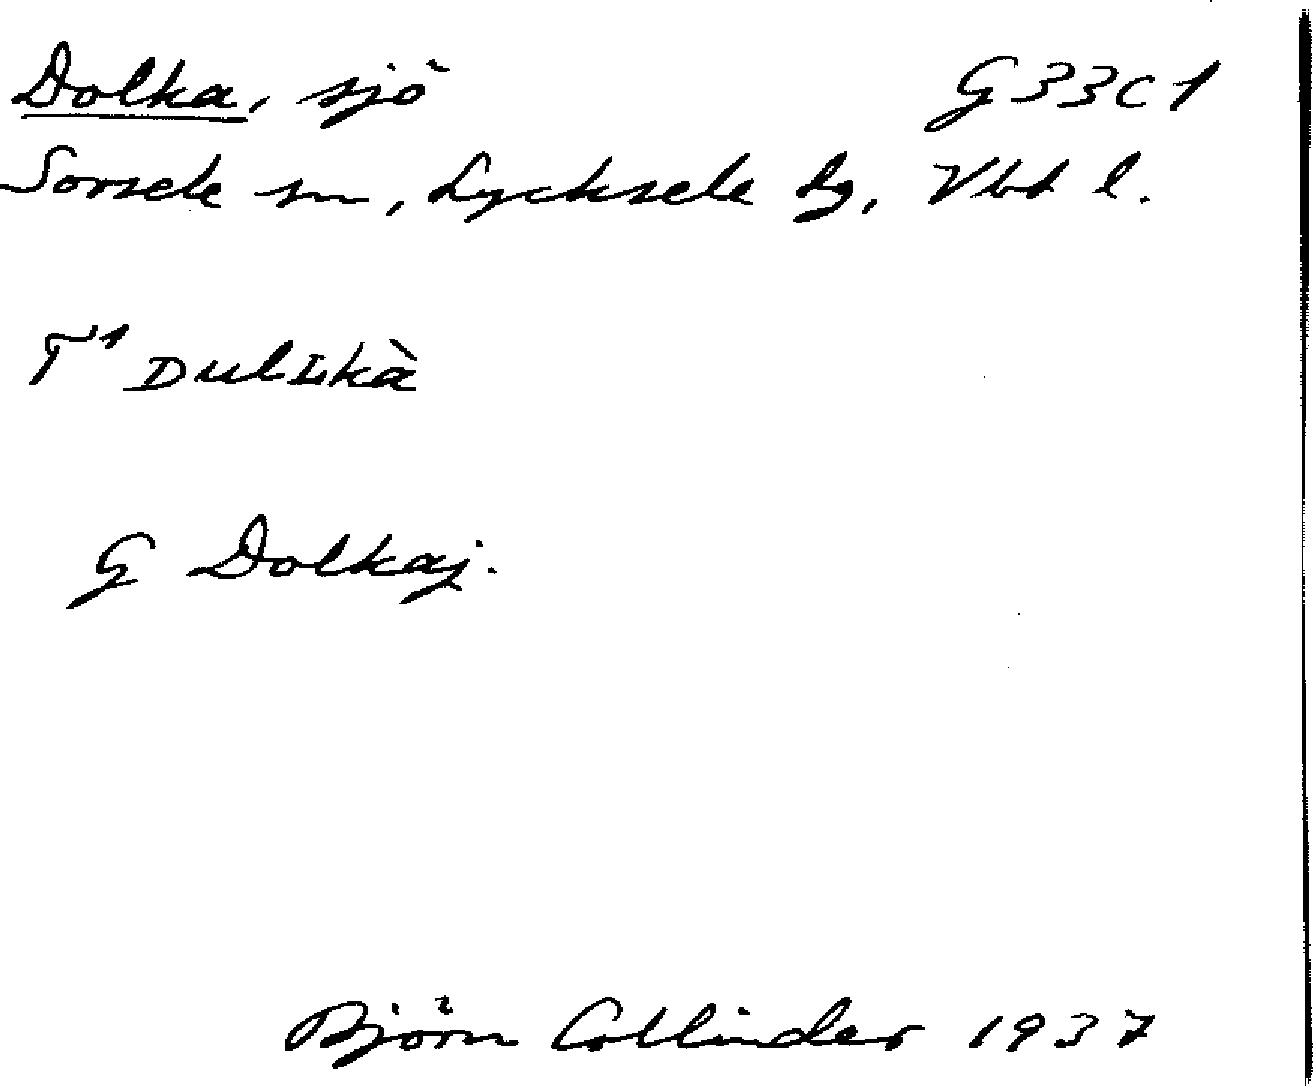 Dolka, sjö G33c1
Sorsele sn, Lycksele lg, Vbt l.
T¹ Dulʟkà
G Dolkaj.
Björn Collinder 1937